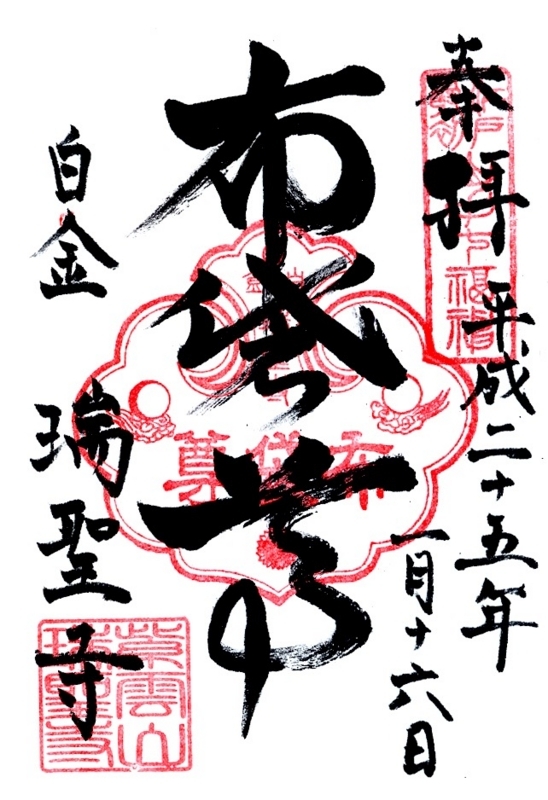 奉拝 平成二十五年
一月十六日
布袋尊
白金 瑞聖寺
布袋尊
紫雲山
瑞聖寺